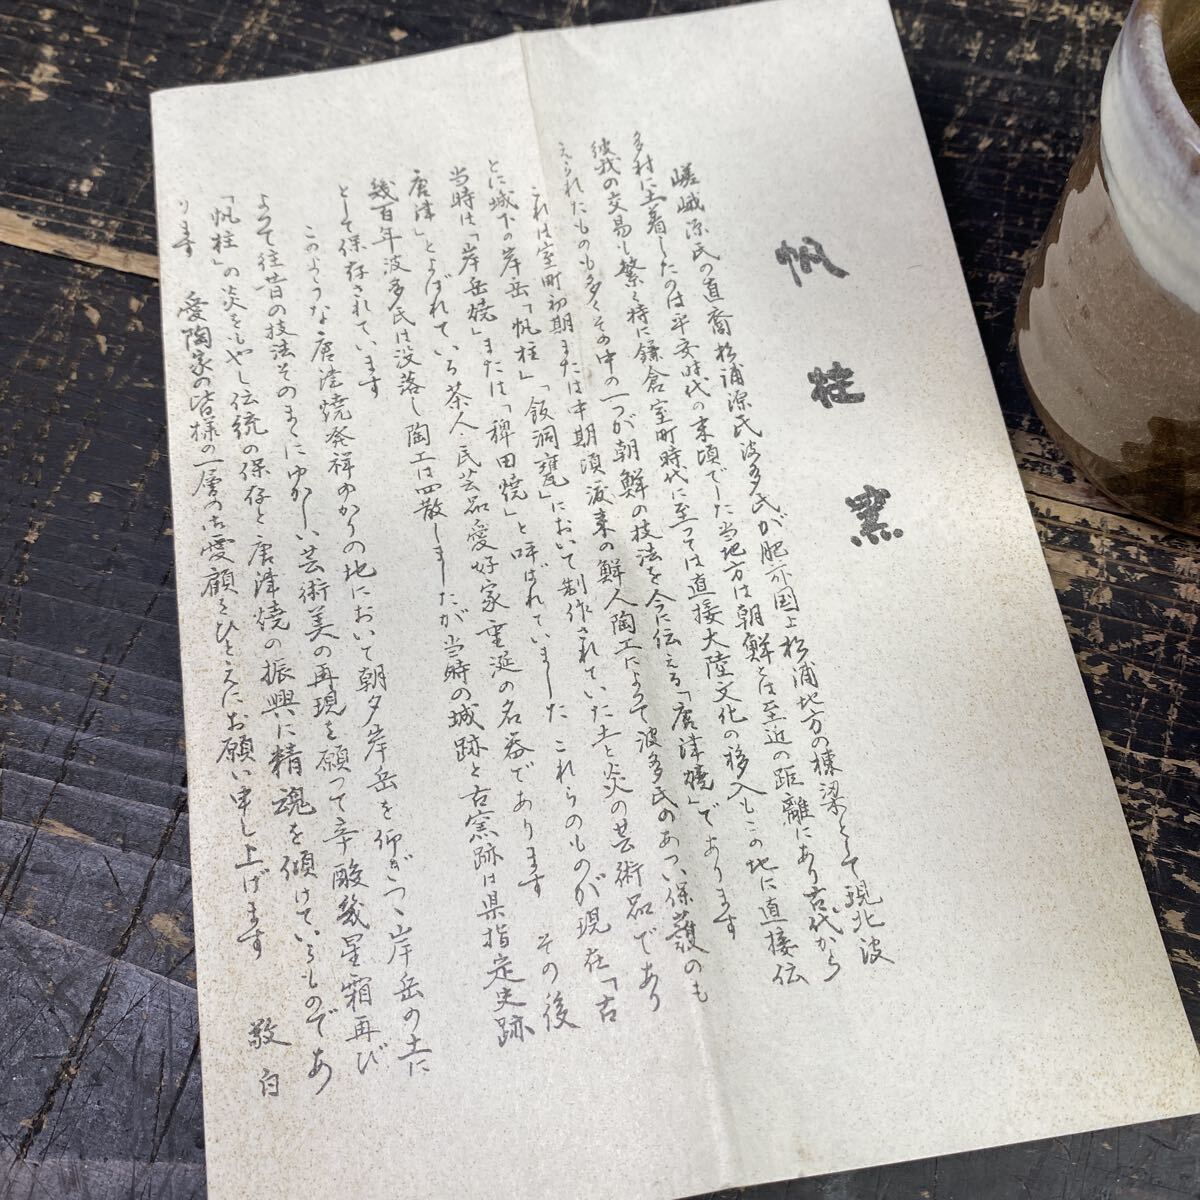 帆柱窯
嵯峨源氏の直裔松浦源氏波多氏が肥前国上松浦地方の棟梁として現北波
多村に土着したのは平安時代の末頃でした当地方は朝鮮とは至近の距離にあり古代から
彼我の交易も繁く特に鎌倉室町時代に至っては直接大陸文化の移入もこの地に直接伝
えられたものも多くその中の一つが朝鮮の技法を今に伝える「唐津焼」であります
これは室町初期または中期頃渡来の鮮人陶工によって波多氏のあつい保護のも
とに城下の岸岳「帆柱」「飯洞甕」において制作されていた土と炎の芸術品であり
当時は「岸岳焼」または「稗田焼」と呼ばれていました これらのものが現在「古
唐津」とよばれている茶人・民芸品愛好家垂涎の名器であります その後
幾百年波多氏は没落し陶工は四散しましたが当時の城跡と古窯跡は県指定史跡
として保存されています
このような唐津焼発祥ゆかりの地において朝夕岸岳を仰ぎつゝ岸岳の土に
よって往昔の技法そのまゝにゆかしい芸術美の再現を願って辛酸幾星霜再び
「帆柱」の炎をもやし伝統の保存と唐津焼の振興に精魂を傾けているものであ
ります 愛陶家の皆様の一層の御愛顧をひとえにお願い申し上げます 敬白